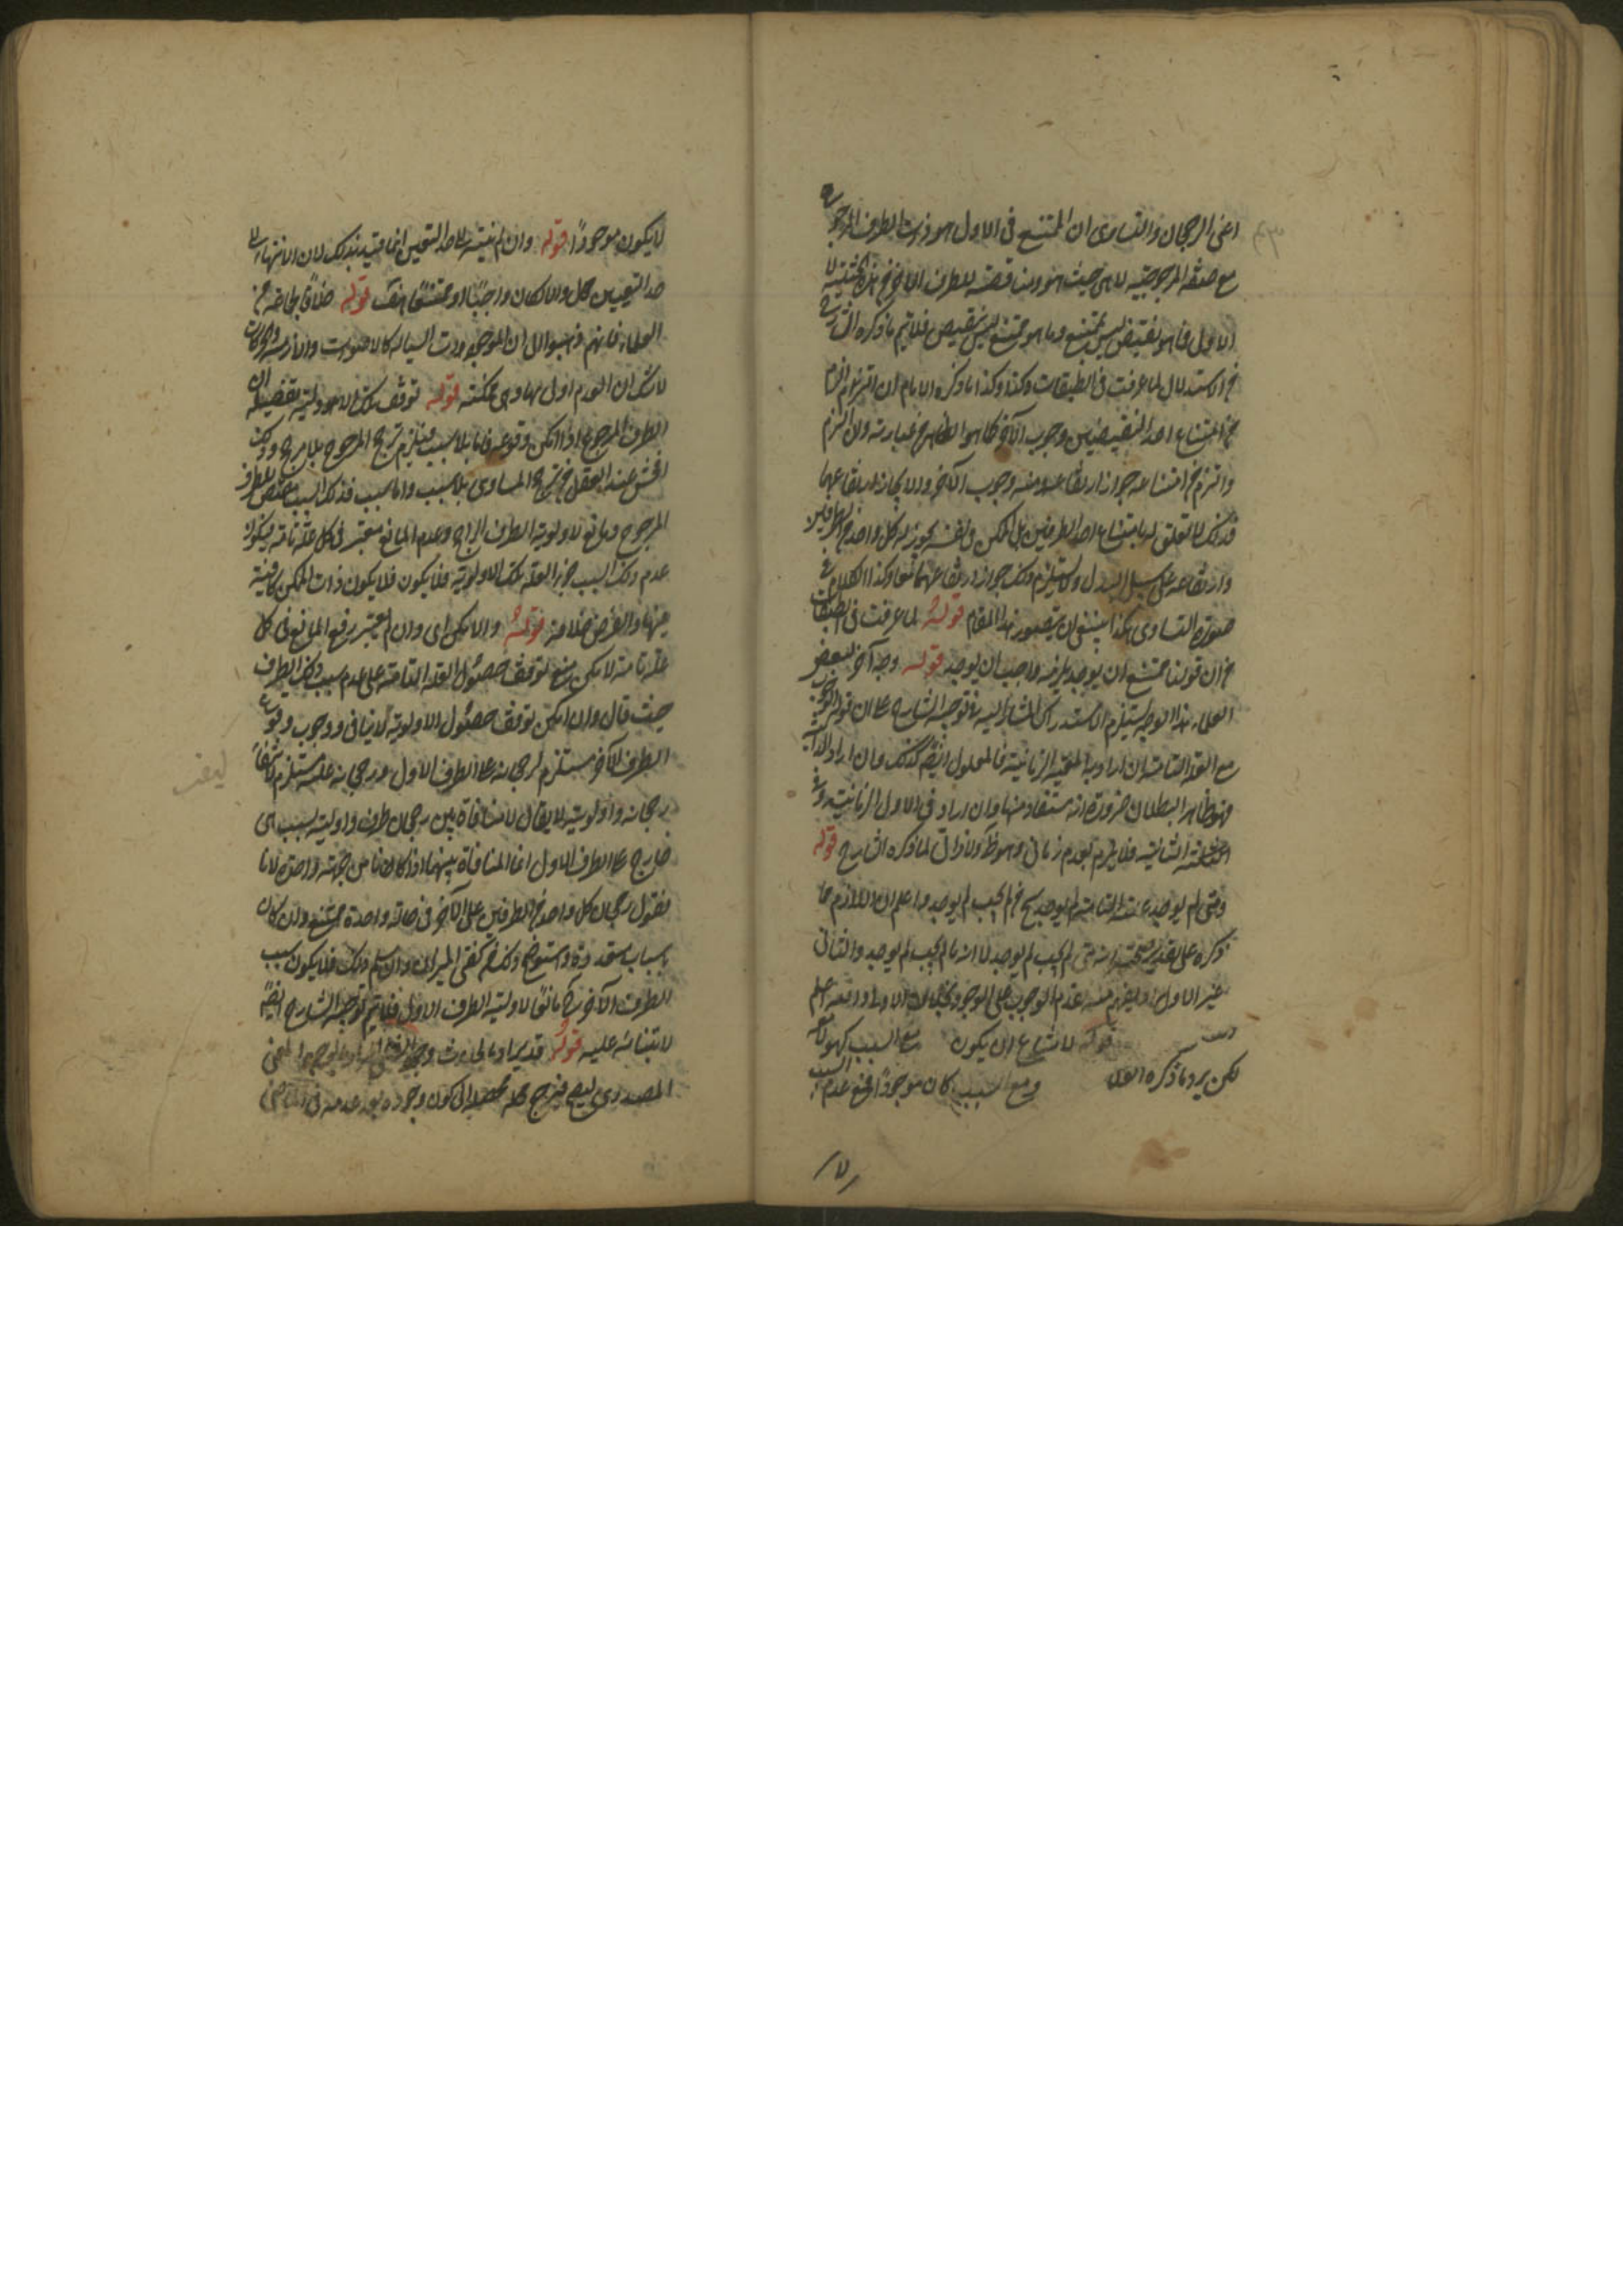 اعنى الرجحان والتساوى ان الممتنع فى الاول هو ذات الطرف المرجوح
مع صفة المرجوحية لا من حيث هو وليت نقيضه للطرف الاخر
الاول فما هو نقيض ليس بممتنع وما هو ممتنع ليس بنقيض فلا يتم ما ذكره الشارح
فى الاستدلال لما عرفت فى الطبقات وكذا ما ذكره الامام ان
من امتناع احد النقيضين وجوب الآخر كما هو الظاهر من عبارته وان التزم
من امتناعه جواز ارتفاعه وجوب الآخر والا لجاز ارتفاعهما
فذلك لا تعلق له بامتناع احد الطرفين بل الممكن فى نفسه يجوز له كل واحد من الطرفين
وارتفاعه على سبيل البدل ولا يستلزم ذلك جواز ارتفاعهما معا وكذا الكلام فى
صورة التساوى هكذا ينبغى ان يتصور هذا المقام قوله لما عرفت فى الطبقات
من ان قولنا ممتنع ان يوجد واجب ان يوجد قوله وجه آخر لبعض
العلماء هذا الوجه يستلزم الاستدراك المشار اليه فى توجيه الشارح
مع العلة التامة ان اراد به المعية الزمانية فالمعلول ايضا كذلك وان اراد الذاتية
فهو ظاهر البطلان ضرورة انه مستفاد منها وان اراد فى الاول الزمانية وفى
الثانية فلا يلزم تقدم زمانى وهو ظ ولا ذاتى لما ذكره الشارح قوله
ومتى لم يوجد علته التامة لم يوجد فمتى لم يجب لم يوجد واعلم ان اللازم مما
ذكره على تقدير صحته انه متى لم يجب لم يوجد لا انه ما لم يجب لم يوجد والثانى
غير الاول ويفهم منه تقدم الوجوب على الوجود بخلاف الاول والله اعلم
قوله لامتناع ان يكون مع السبب كهو لا معه
لكن يرد ما ذكره العلا ومع السبب كان موجودا فمع عدم السبب
١٧
لا يكون موجودا قوله وان لم ينته الى حد التعين انما قيد بذلك لان الانتهاء الى
حد التعين محال والا لكان واجبا او ممتنعا هف قوله خلافا لجماعة من
العلماء فانهم ذهبوا الى ان الموجودات السيالة كالاصوات والازمنة والحركات
لا شك ان العدم اولى بها وهى ممكنة قوله توقف تلك الاولوية
الطرف المرجوح اذا امكن وقوعه فاما بلا سبب فيلزم ترجح المرجوح بلا مرجح وذلك
افحش عند العقل من ترجح المساوى بلا سبب واما بسبب فذلك السبب مقتض للطرف
المرجوح ومانع لاولوية الطرف الراجح وعدم المانع معتبر فى كل علة تامة فيكون
عدم ذلك السبب جزء العلة بتلك الاولوية فلا يكون ذات الممكن كافية
فيها والفرض خلافه قوله والا لكن اى وان لم يعتبر رفع المانع فى كل
علة تامة لا يمكن منع توقف حصول العلة التامة على عدم سبب ذلك الطرف
حيث قال وان امكن توقف حصول الاولوية لا ينافى ووجوب وقوع
الطرف الآخر مستلزم لرجحانه على الطرف الاول ورجحانه عليه مستلزم لانتفاء
رجحانه واولويته لا يقال لا منافاة بين رجحان طرف واولوية بسبب
خارج على الطرف الاول انما المنافاة بينهما اذا كانا من جهة واحدة لانا
نقول رجحان كل واحد من الطرفين على الآخر فى حالة واحدة ممتنع وان كان
باسباب متعددة واستوضح ذلك من كفتى الميزان وان سلم ذلك فلا يكون سبب
الطرف الآخر مانعا لاولوية الطرف الاول فلا يتم توجيه الشارح ايضا
لابتنائه عليه قوله قد يراد بالحدوث
المصدرى كون وجوده بعد عدمه فى الماضى